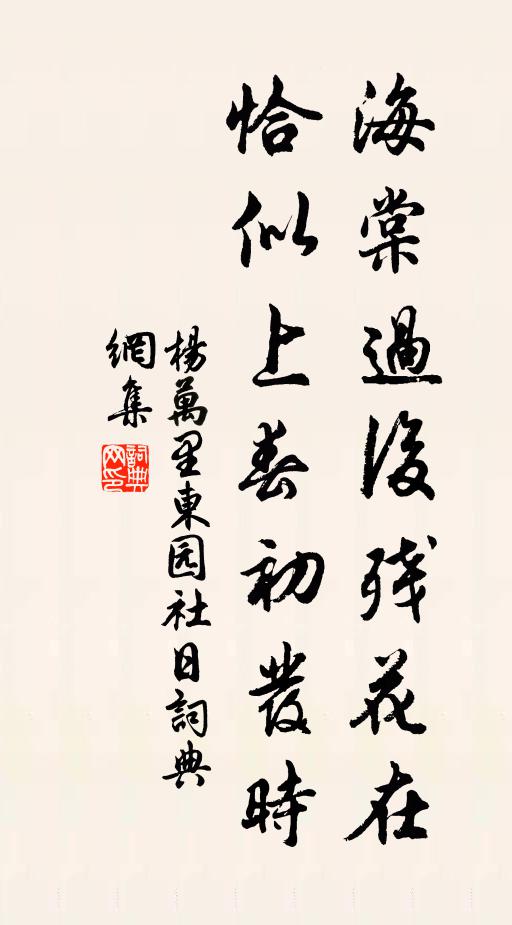 海棠過後残花在
恰似上春初發時
楊萬里東园社日詞典
網集
詞典
网印